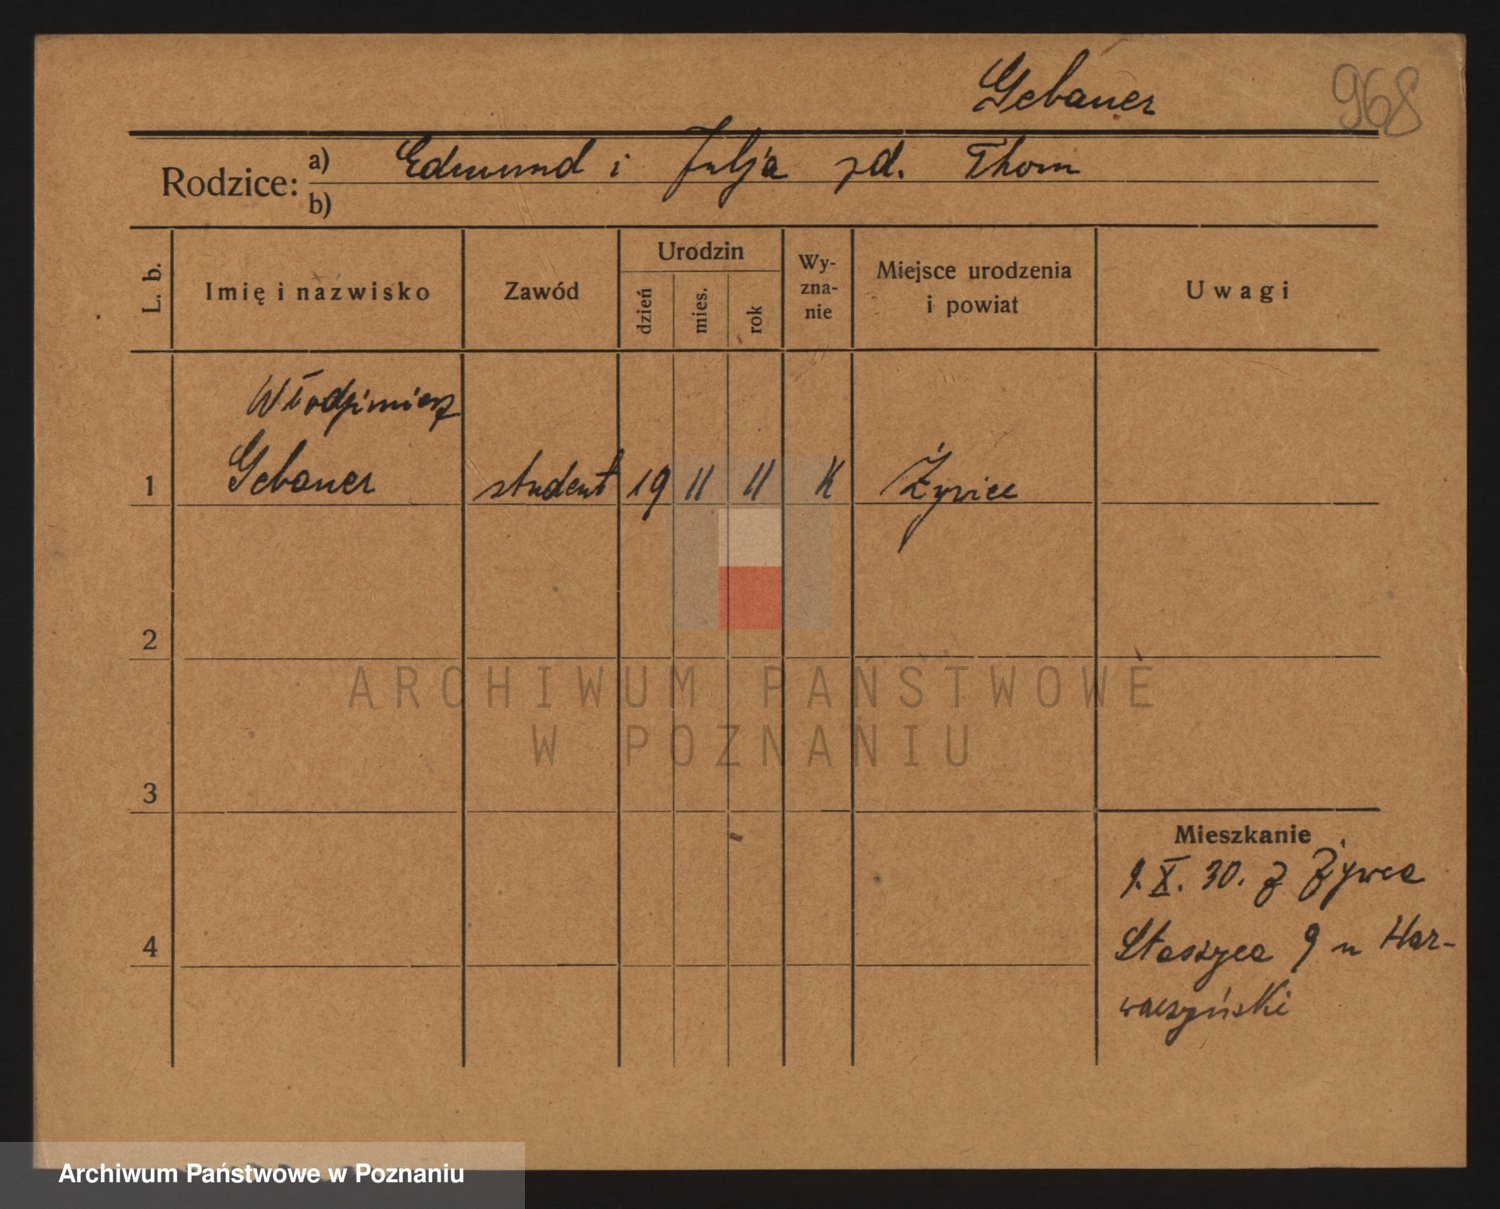 Gebauer
968
Rodzice: a) Edmund i Julja zd. Thom
b)
L. b.
Imię i nazwisko
Zawód
Urodzin
dzień
mies.
rok
Wy-
zna-
nie
Miejsce urodzenia
i powiat
Uwagi
Włodzimierz
1 Gebauer student 19 11 11 K Żywiec
2
3
4
Mieszkanie
9. X. 30. z Żywca
Staszyca 9 u Har-
waczyński
ARCHIWUM PAŃSTWOWE
W POZNANIU
Archiwum Państwowe w Poznaniu